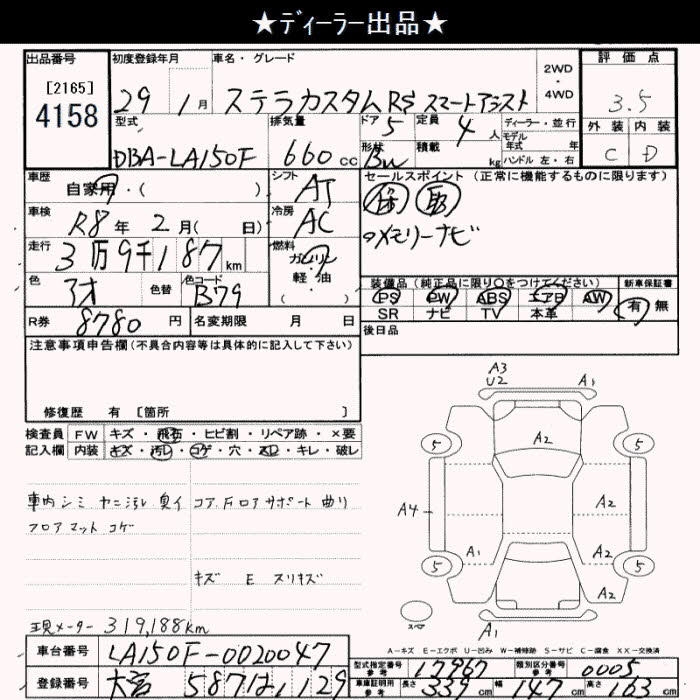 ★ディーラー出品★
出品番号 初度登録年月 車名・グレード 2WD・4WD 評価点
[2165]
4158
29年1月 ステラカスタムRS スマートアシスト 3.5
型式 排気量 ドア 5 定員 4人 ディーラー・並行 外装 内装
DBA-LA150F 660cc 形状 Bn 積載 kg モデル年式 年 ハンドル 左・右 C D
車歴 自家用・( ) シフト AT セールスポイント (正常に機能するものに限ります)
車検 R8年2月( 日) 冷房 AC 保 取
走行 3万9千187km 燃料 ガソリン 軽・油 ( ) ○メモリーナビ
色 アオ 色替 色コード B79 装備品(純正品に限り○をつけてください) 新車保証書
PS PW ABS エアB AW 有 無
SR ナビ TV 本革
R券 8780円 名変期限 月 日 後日品
注意事項申告欄(不具合内容等は具体的に記入して下さい)
修復歴 有 [箇所 ]
検査員 FW キズ・飛石・ヒビ割・リペア跡・×要
記入欄 内装 キズ・汚レ・コゲ・穴・・キレ・破レ
車内シミ ヤニ汚レ 臭イ コアFロアサポート曲リ
フロアマットコゲ
キズ E スリキズ
現メーター 319,188km
A3
U2
A1
A2
5 5
A4
A2
A1 A2
5 5
A2
スペア
A1
A-キズ E-エクボ U-凹み W-補修跡 S-サビ C-腐食 XX-交換済
車台番号 LA150F-0020047 型式指定番号 参考 17967 類別区分番号 参考 0005
登録番号 大宮 587 は 1129 車庫証明用 参考 長さ 339cm 幅 147cm 高さ 163cm